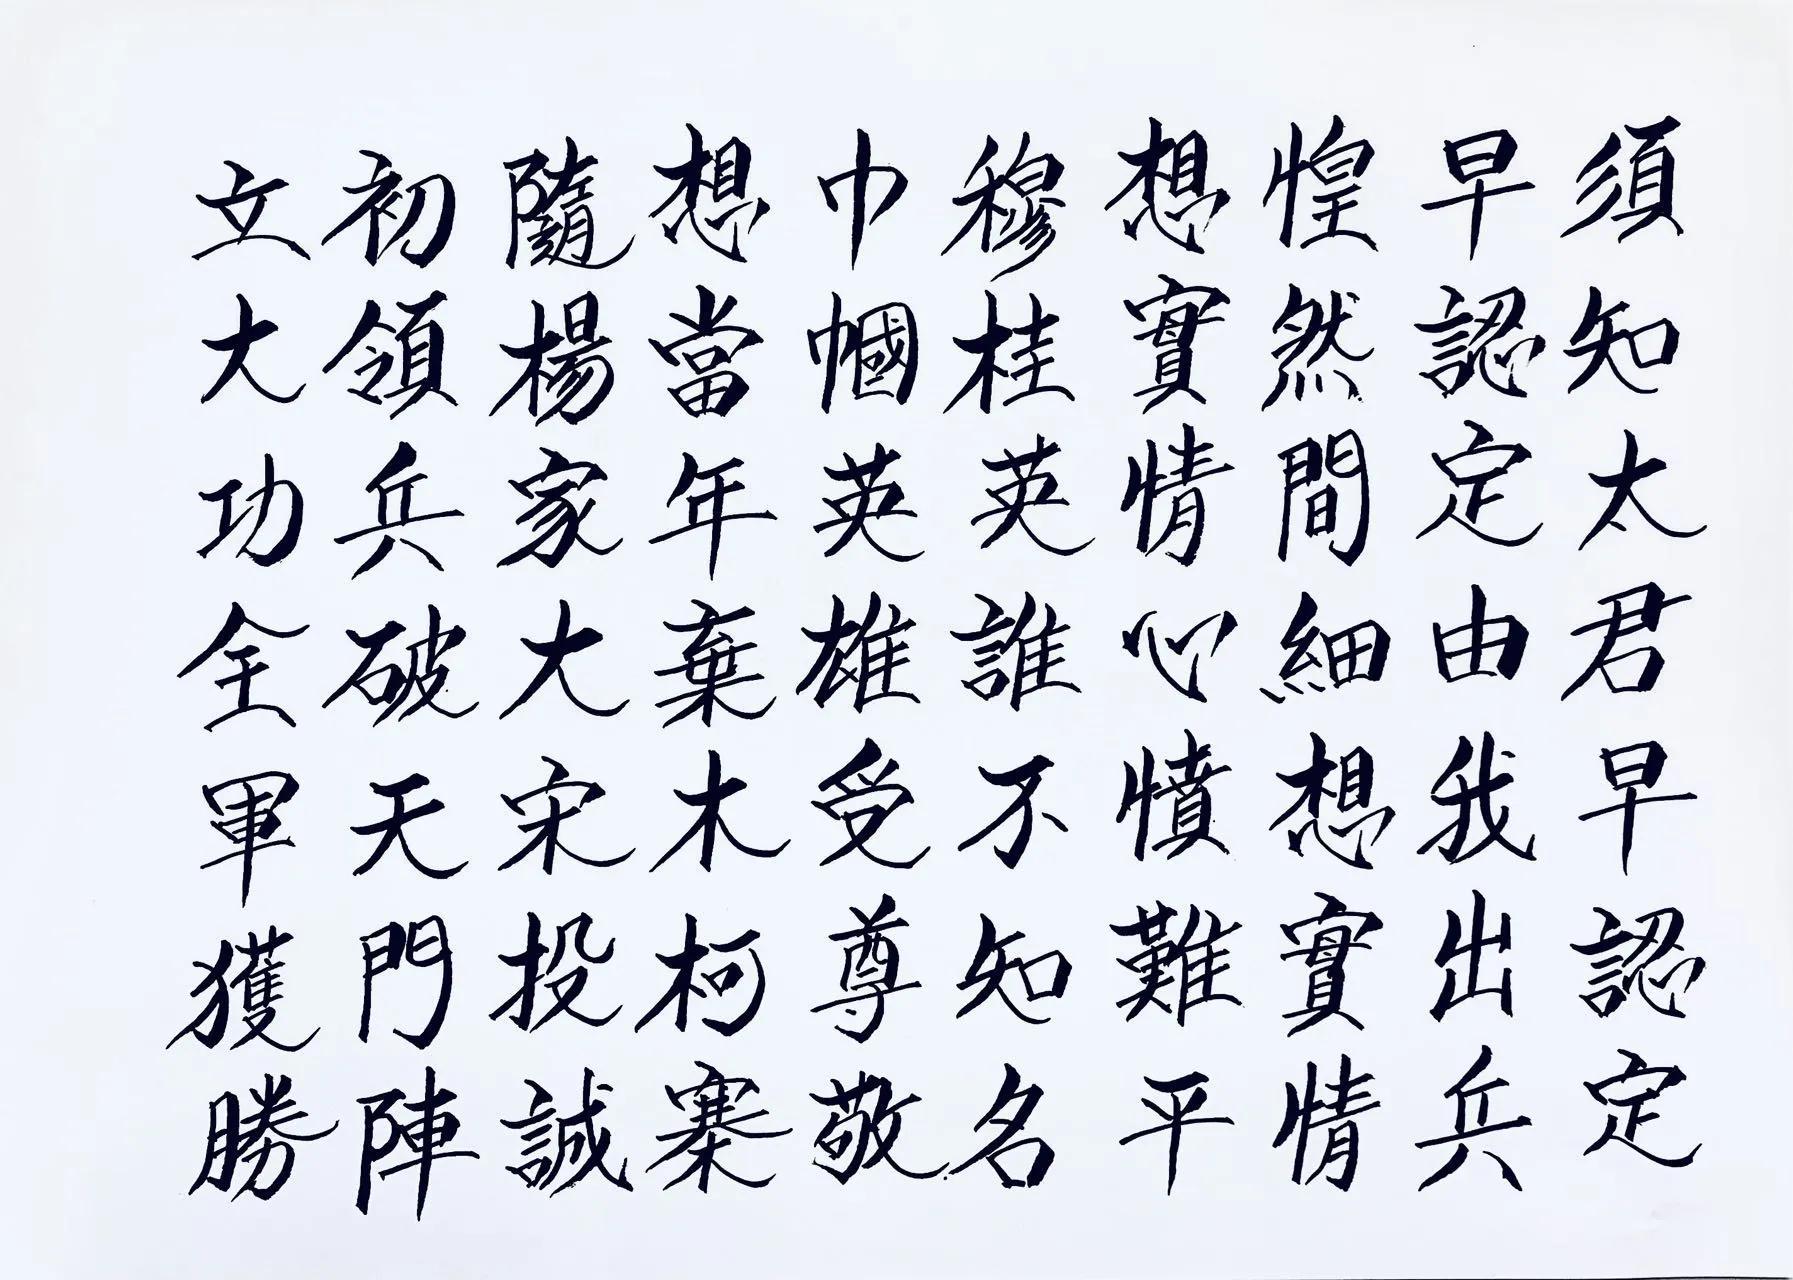 須知太君早認定
早認定由我出兵
惶然間細想實情
想實情心憤難平
穆桂英誰不知名
巾幗英雄受尊敬
想當年棄木柯寨
隨楊家大宋投誠
初領兵破天門陣
立大功全軍獲勝